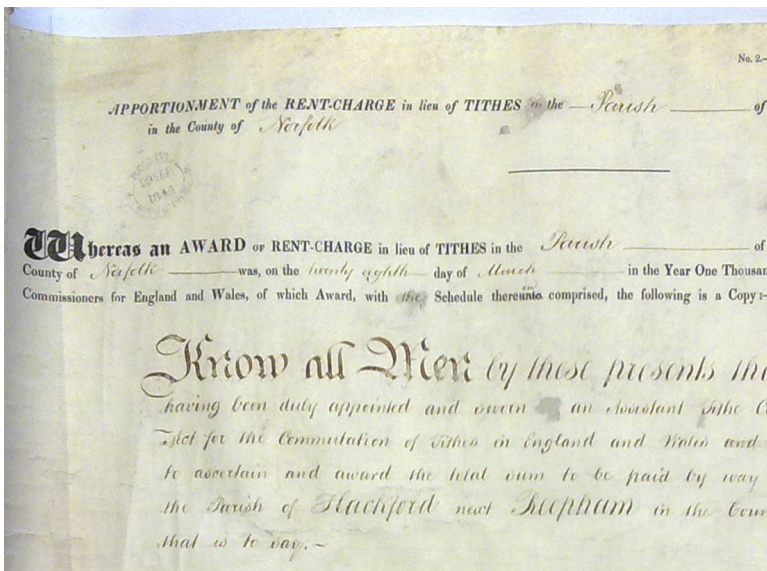 No. 2.—
APPORTIONMENT of the RENT-CHARGE in lieu of TITHES in the — Parish ——— of
in the County of Norfolk
Whereas an AWARD OF RENT-CHARGE in lieu of TITHES in the Parish ——— of
County of Norfolk ——— was, on the twenty eighth — day of March ——— in the Year One Thousan
Commissioners for England and Wales, of which Award, with the Schedule therein comprised, the following is a Copy:—
Know all Men by these presents tha
having been duly appointed and sworn an Assistant Tithe C
Act for the Commutation of Tithes in England and Wales and
to ascertain and award the total sum to be paid by way
the Parish of Hackford next Reepham in the Coun
that is to say.—